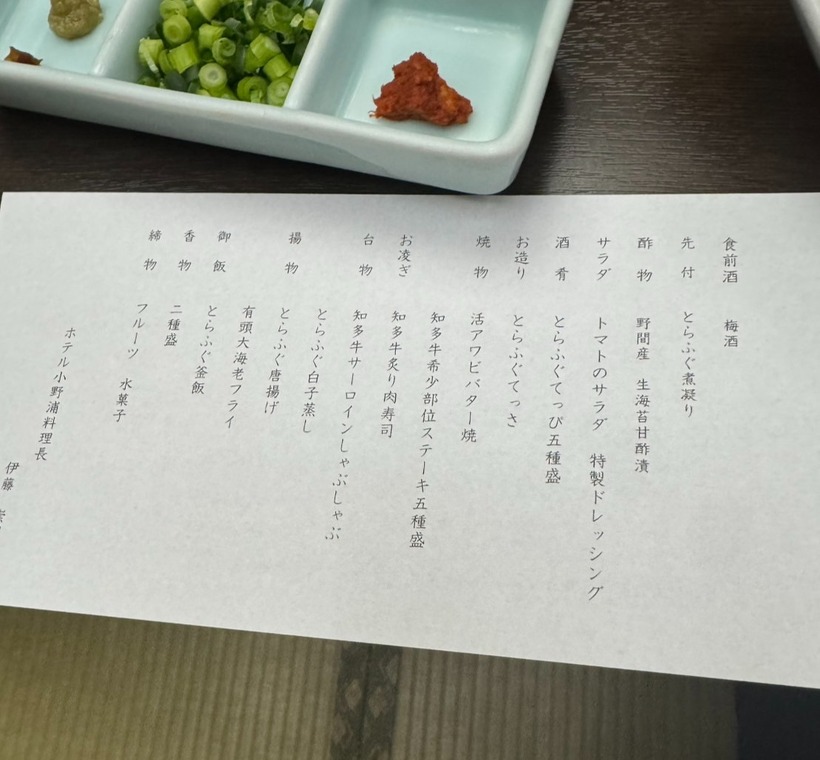 食前酒 梅酒
先付 とらふぐ煮凝り
酢物 野間産 生海苔甘酢漬
サラダ トマトのサラダ 特製ドレッシング
酒肴 とらふぐてっぴ五種盛
お造り とらふぐてっさ
焼物 活アワビバター焼
知多牛希少部位ステーキ五種盛
お凌ぎ 知多牛炙り肉寿司
台物 知多牛サーロインしゃぶしゃぶ
とらふぐ白子蒸し
揚物 とらふぐ唐揚げ
有頭大海老フライ
御飯 とらふぐ釜飯
香物 二種盛
締物 フルーツ 水菓子
ホテル小野浦料理長
伊藤